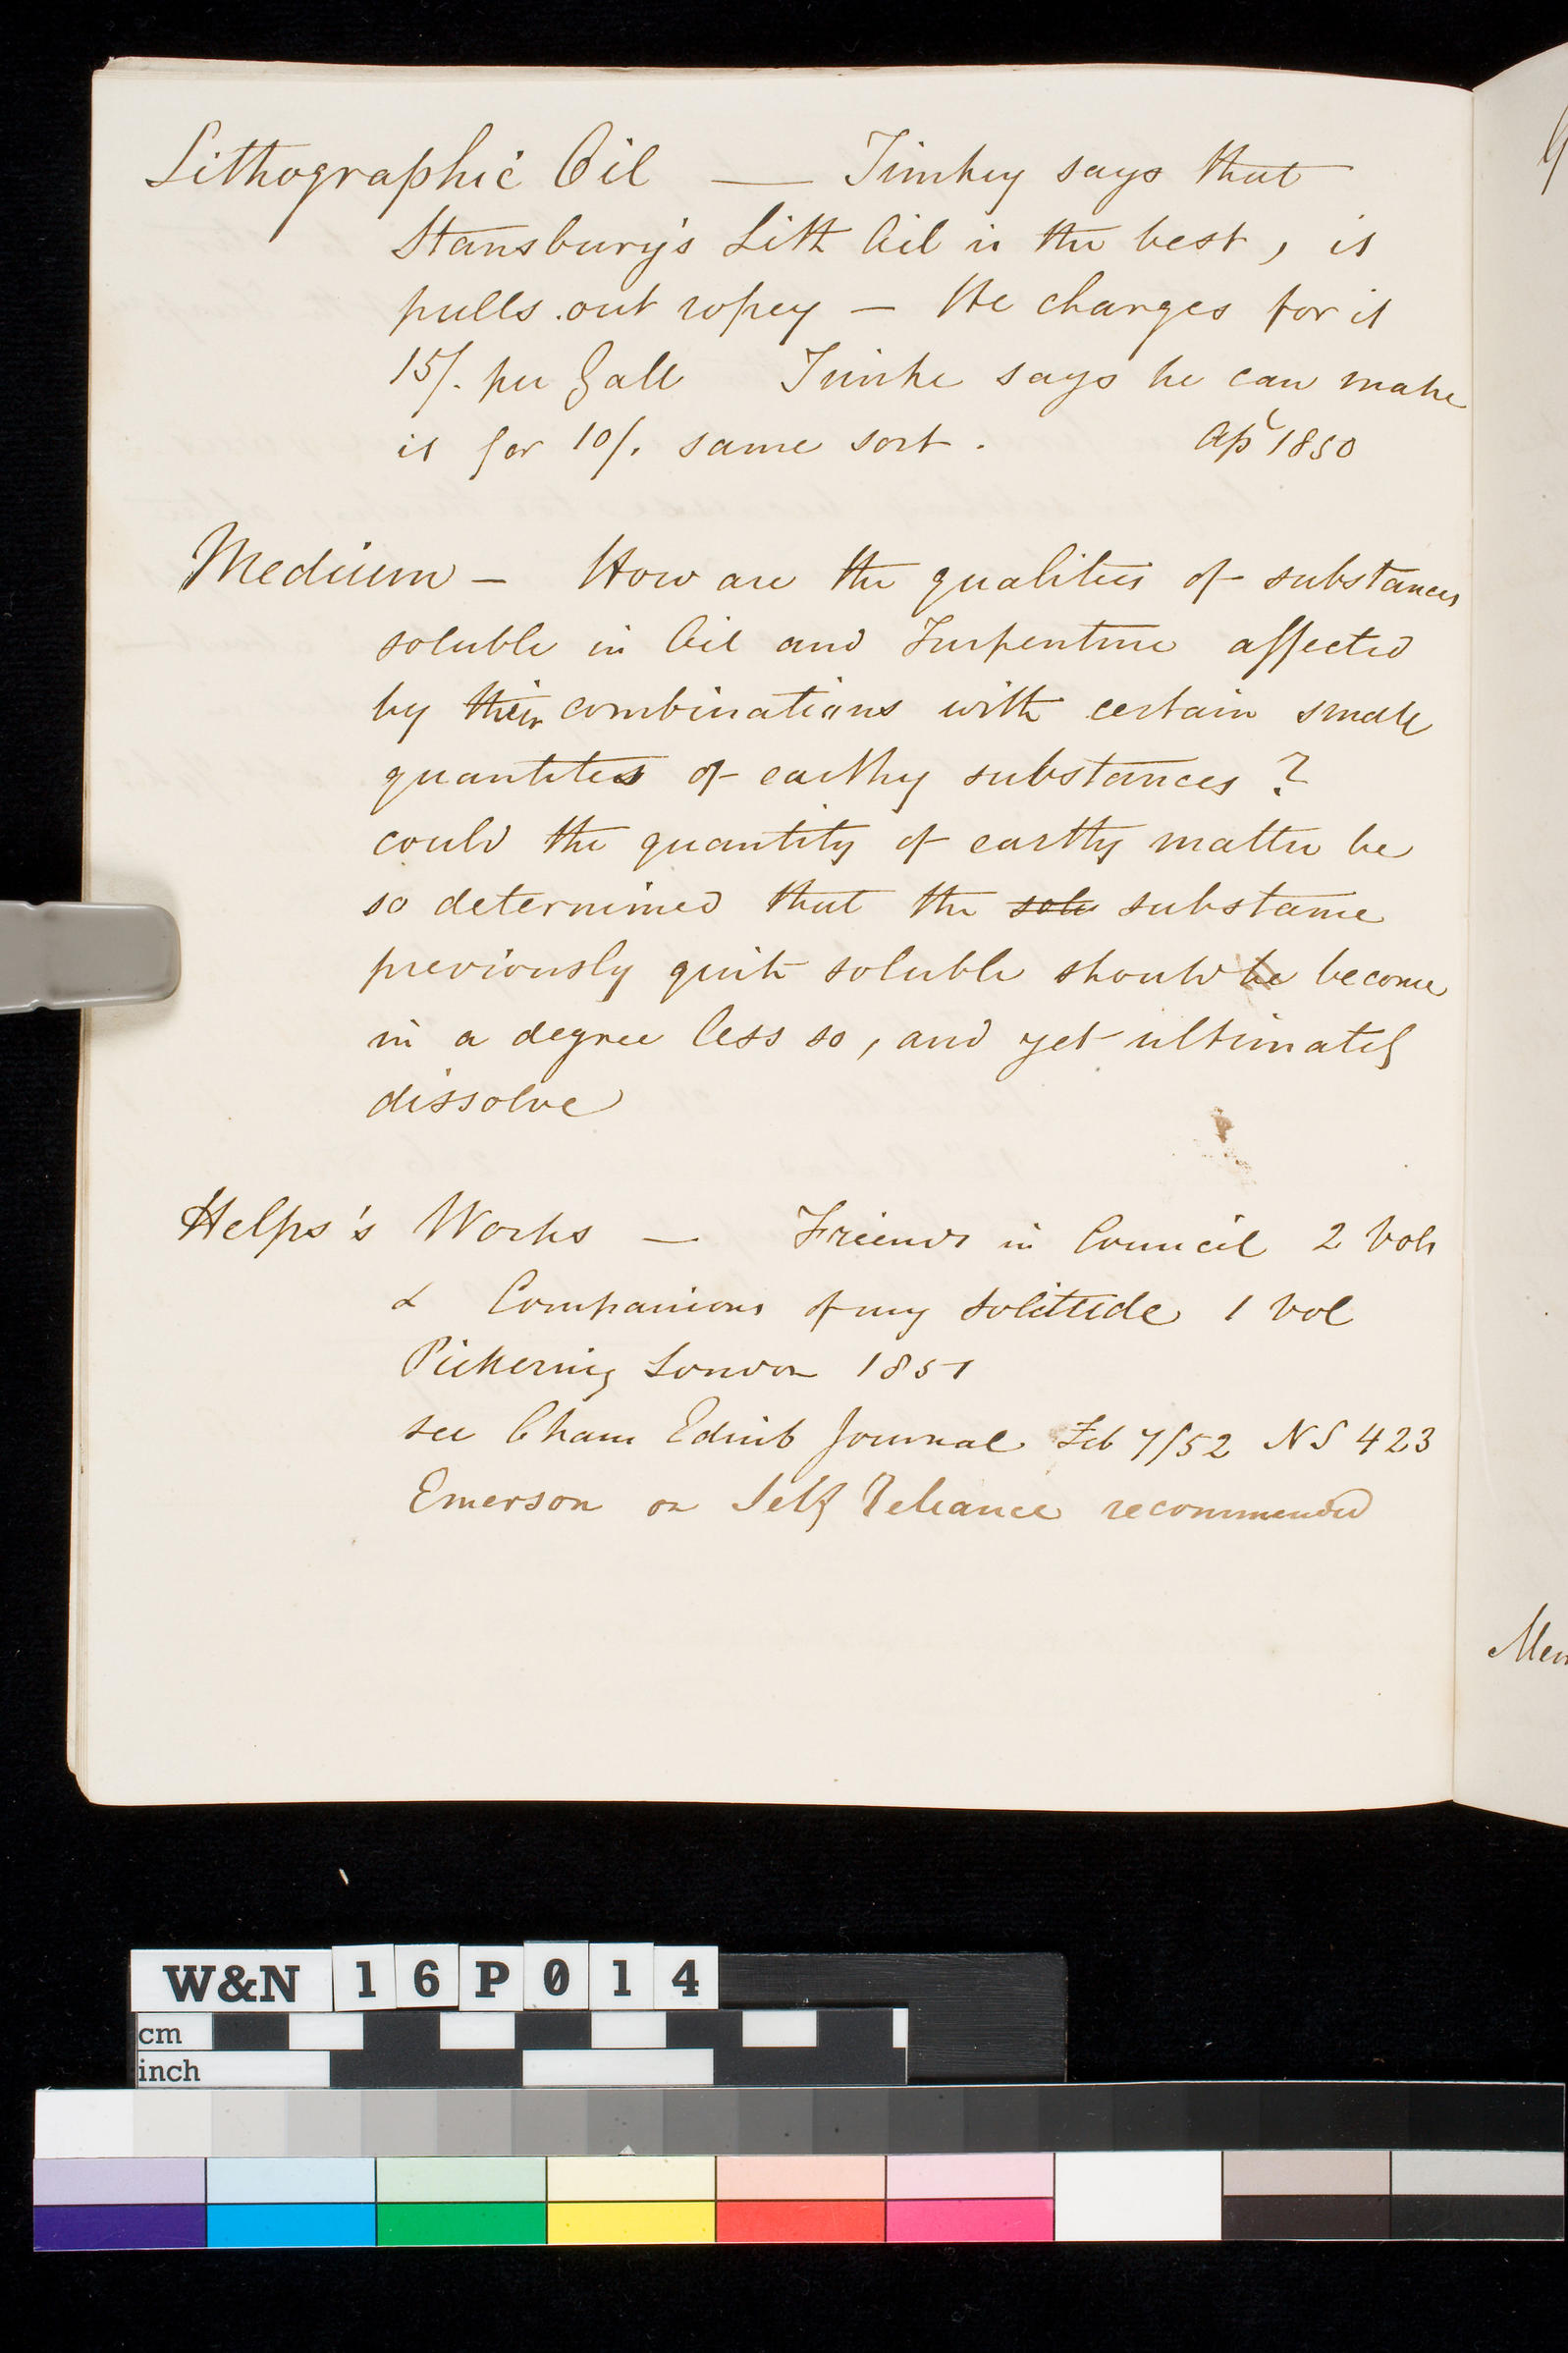 Lithographic Oil — Timkey says that
Stansbury's Lith Oil is the best, it
pulls out ropey — He charges for it
15/. per Gall Timke says he can make
it for 10/. same sort. Apl 1850
Medium — How are the qualities of substances
soluble in Oil and Turpentine affected
by their combinations with certain small
quantites of earthy substances ?
could the quantity of earthy matter be
so determined that the solu substance
previously quite soluble should be become
in a degree less so, and yet ultimately
dissolve
Helps's Works — Friends in Council 2 Vols
& Companions of my Solitude 1 Vol
Pickering London 1851
see Cham Edinb Journal Feb 7/52 NS 423
Emerson on Self Reliance recommended
Mem
W&N 16P014
cm
inch